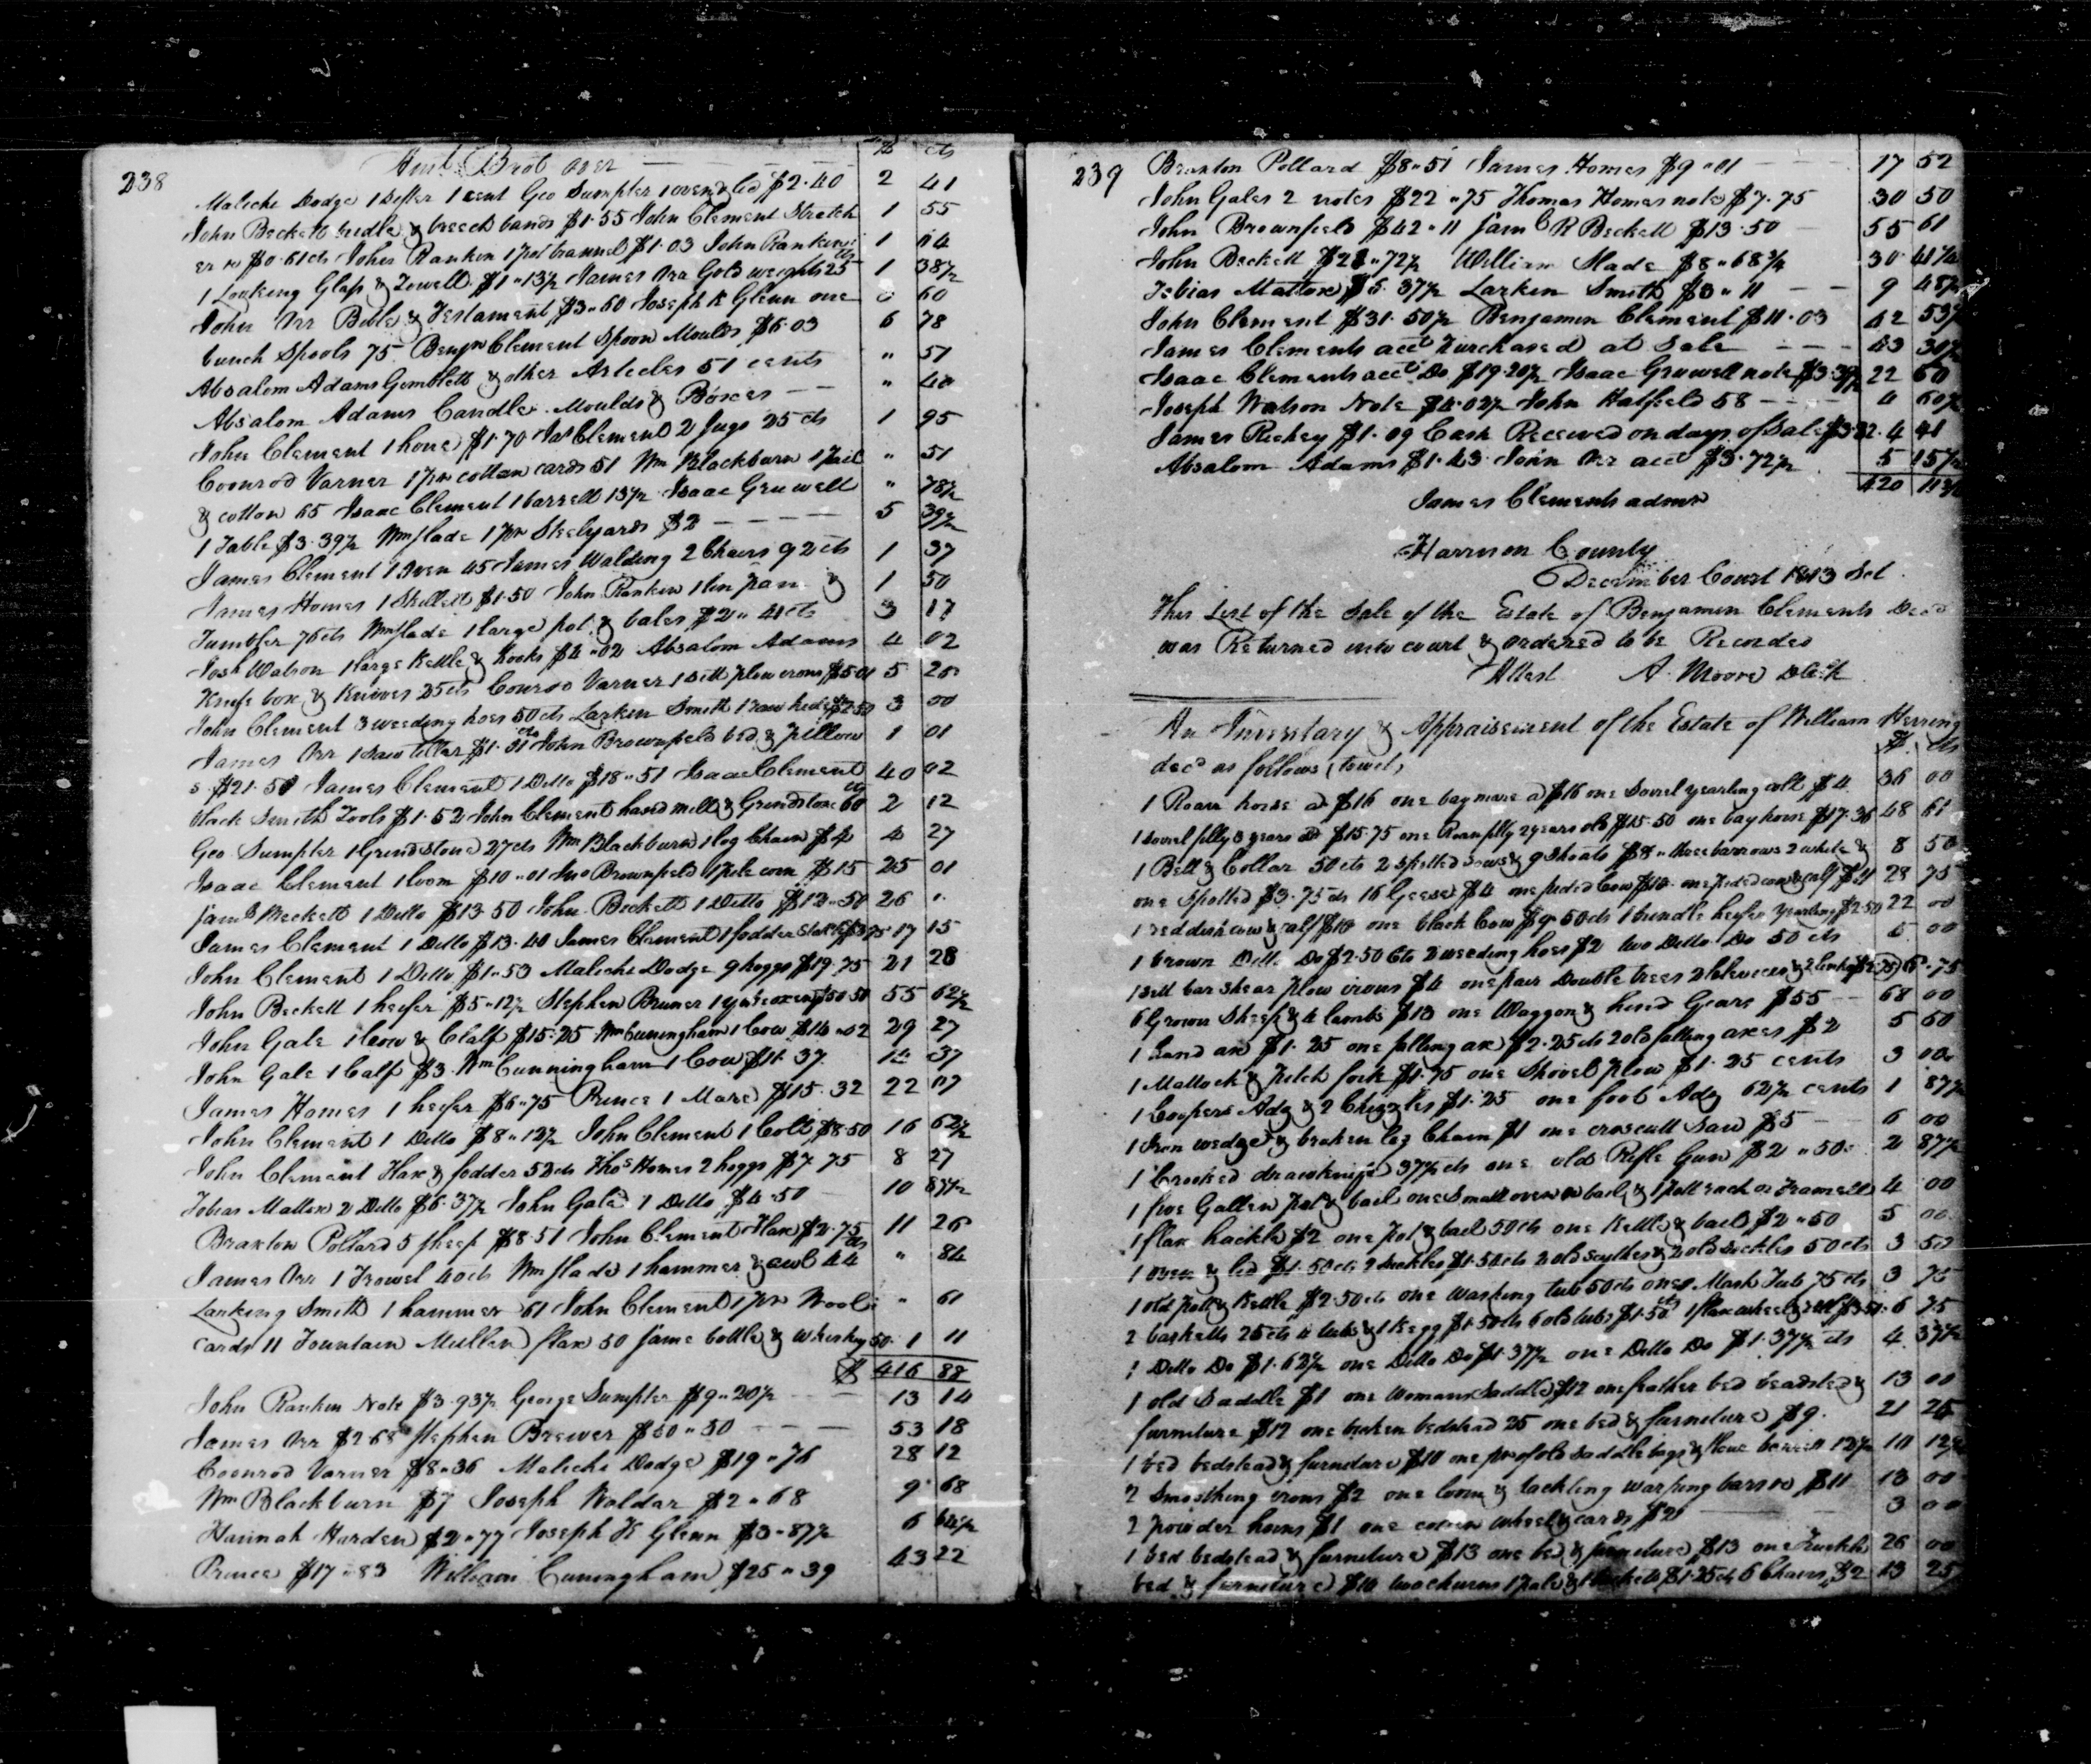 238
Amt Brot over $ cts
Malichi Dodge 1 Sifter 1 cent Geo Sumpter 1 oven & led $2.40 2 41
John Beckett bridle & breech bands $1.55 John Clement Stretch 1 55
er $0.61cts John Rankin 1 $1.03 John Rankin 1 64
1 Looking Glass & Towell $1"13½ James Orr Gold weights 25 cts 1 38½
John Orr Bible & Testament $3"60 Joseph K Glenn one 60
bunch Spools 75 Benjn Clement Spoon Moulds $6.03 6 78
Absalom Adams Gimblett & other Articles 51 cents " 51
Absalom Adams Candle Moulds & Boxes " 40
John Clement 1 hone $1.70 Jas Clement 2 Jugs 25 cts 1 95
Coonrod Varner 1 pr cotton cards 51 Wm Blackburn 1 pail " 51
& cotton 65 Isaac Clement 1 barrell 13½ Isaac Gruwell " 78½
1 Table $3.39½ Wm Slade 1 pr Steelyards $2 5 39½
James Clement 1 Oven 45 James Walding 2 Chairs 92 cts 1 37
James Homes 1 Skillett $1.50 John Rankin 1 tin pan & 1 50
Tumbler 76 cts Wm Slade 1 large pot & bales $2"41 cts 3 17
Josh Watson 1 large Kettle & hooks $4"02 Absalom Adams 4 02
Knife box & Knives 25 cts Conrod Varner 1 sett plow irons $5.01 5 26
John Clement 3 weeding hoes 50 cts Larkin Smith 1 raw hide $2.50 3 00
James Orr 1 $1.01 cts John Brownfeld bed & pillow 1 01
s $21.51 James Clement 1 Ditto $18"51 Isaac Clement 40 02
black Smith Tools $1.52 John Clement hand mill & Grindstone 60 cts 2 12
Geo Sumpter 1 Grindstone 27 cts Wm Blackburn 1 log Chain $4 4 27
Isaac Clement 1 loom $10"01 Jno Brownfield 1 pile corn $15 25 01
Beckett 1 Ditto $13.50 John Beckett 1 Ditto $12.50 26 "
James Clement 1 Ditto $13.40 James Clement 1 fodder stack $3.75 17 15
John Clement 1 Ditto $1.53 Malichi Dodge 9 hoggs $19.75 21 28
John Beckett 1 heifer $5"12½ Stephen 1 yoke oxen $50.50 55 62½
John Gale 1 Cow & Calf $15.25 Wm Cuningham 1 Cow $14"02 29 27
John Gale 1 Calf $3 Wm Cunningham 1 Cow $11.37 14 37
James Homes 1 heifer $6"75 Prince 1 Mare $15.32 22 07
John Clement 1 Ditto $8"12½ John Clement 1 Colt $8.50 16 62½
John Clement Flax & fodder 52 cts Thos Homes 2 hoggs $7.75 8 27
Tobias Mattox 2 Ditto $6.37½ John Gale 1 Ditto $4.50 10 87½
Braxton Pollard 5 sheep $8.51 John Clement Flax $2.75 11 26
James Orr 1 Trowel 40 cts Wm Slade 1 hammer & awl 44 cts " 84
Larking Smith 1 hammer 61 John Clement 1 pr Wool " 61
cards 11 Fountain Mullen flax 50 same bottle & whiskey 50. 1 11
$ 416 88
John Rankin Note $3.93½ George Sumpter $9"20½ 13 14
James Orr $2.68 Stephen Brewer $50"50 53 18
Coonrod Varner $8"36 Malichi Dodge $19"76 28 12
Wm Blackburn $7 Joseph Waldar $2"68 9 68
Hannah Harden $2"77 Joseph K Glenn $3"87½ 6 64½
Prince $17"83 William Cuningham $25"39 43 22
239
Braxton Pollard $8"51 James Homes $9"01 17 52
John Gales 2 notes $22"75 Thomas Homes note $7.75 30 50
John Brownfield $42"11 R Beckett $13.50 55 61
John Beckett $21"72½ William Slade $8"68¾ 30 41¼
Tobias Mattox $6.37½ Larkin Smith $3"11 9 48½
John Clement $31.50½ Benjamin Clement $11.03 42 53½
James Clements acct Purchased at Sale 43 30½
Isaac Clements acct Do $19.20½ Isaac Gruwell note $3.39½ 22 60
Joseph Watson Note $4.02½ John Hatfield 58 4 60½
James Richey $1.09 Cash Received on day of Sale $3.32 4 41
Absalom Adams $1.43 John Orr acct $3.72½ 5 15½
420
James Clements admr
Harrison County
December Court 1813 Sct
This List of the Sale of the Estate of Benjamin Clements Decd
was Returned into court & ordered to be Recorded
Attest A. Moore D Clk
An Inventory & Appraisement of the Estate of William Herring
decd as follows (towit) $ cts
1 Roan horse at $16 one bay mare at $16 one Sorrel yearling colt $4 36 00
1 sorrel filly 3 years old $15.75 one Roan filly 2 years old $15.50 one bay horse $17.36 48 61
1 Bell & Collar 50 cts 2 spotted sows & 9 Shoats $8 " three barrows 2 white & 8 50
one Spotted $3.75 cts 16 Geese $4 one pided Cow $10 one pided cow & calf $11 28 75
1 reddish cow & calf $10 one black Cow $9.50 cts 1 brindle heifer yearling $2.50 22 00
1 brown Ditto Do $2.50 Cts 2 weeding hoes $2 two Ditto Do 50 cts 5 00
1 sett bar shear plow irons $4 one pair Double trees 2 clevices & 2 links $2.75 6.75
6 Grown Sheep & 4 lambs $13 one Waggon & hind Gears $55 68 00
1 hand ax $1.25 one falling ax $2.25 cts 2 old falling axes $2 5 50
1 Mattock & pitch fork $1.75 one Shovel plow $1.25 cents 3 00
1 Coopers Adz & 2 Chizzles $1.25 one foot Adz 62½ cents 1 87½
1 Iron wedge & broken log Chain $1 one crosscutt Saw $5 6 00
1 Crooked drawknife 37½ cts one old Rifle Gun $2"50 2 87½
1 five Gallen pot & bail one Small oven no bail & 1 pott rack or Tramell 4 00
1 flax hackle $2 one pot & bail 50 cts one Kettle & bail $2"50 5 00
1 oven & led $1.50 cts 2 Sickles $1.50 cts 2 old Scythes & 2 old Sickles 50 cts 3 50
1 old pott & Kettle $2.50 cts one Washing tub 50 cts one Mash Tub 75 cts 3 75
2 basketts 25 cts 4 tubs & 1 Kegg $1.50 cts 6 old tubs $1.50 cts 1 flax wheel & reel $3.50 6 75
1 Ditto Do $1.62½ one Ditto Do $1.37½ one Ditto Do $1.37½ cts 4 37½
1 old Saddle $1 one Womans Saddle $12 one feather bed beadsted & 13 00
furniture $12 one broken bedstead 25 one bed & furniture $9. 21 25
1 bed bedstead & furniture $10 one pr of old Saddle bags & flour barrell 12½ 10 12½
2 Smoothing irons $2 one loom & tackling warping bars $11 13 00
2 powder horns $1 one cotton wheel & cards $2 3 00
1 bed bedstead & furniture $13 one bed & furniture $13 one Trunkle 26 00
bed & furniture $10 two churns 1 pale & 1 $1.25 cts 6 Chairs $2 13 25